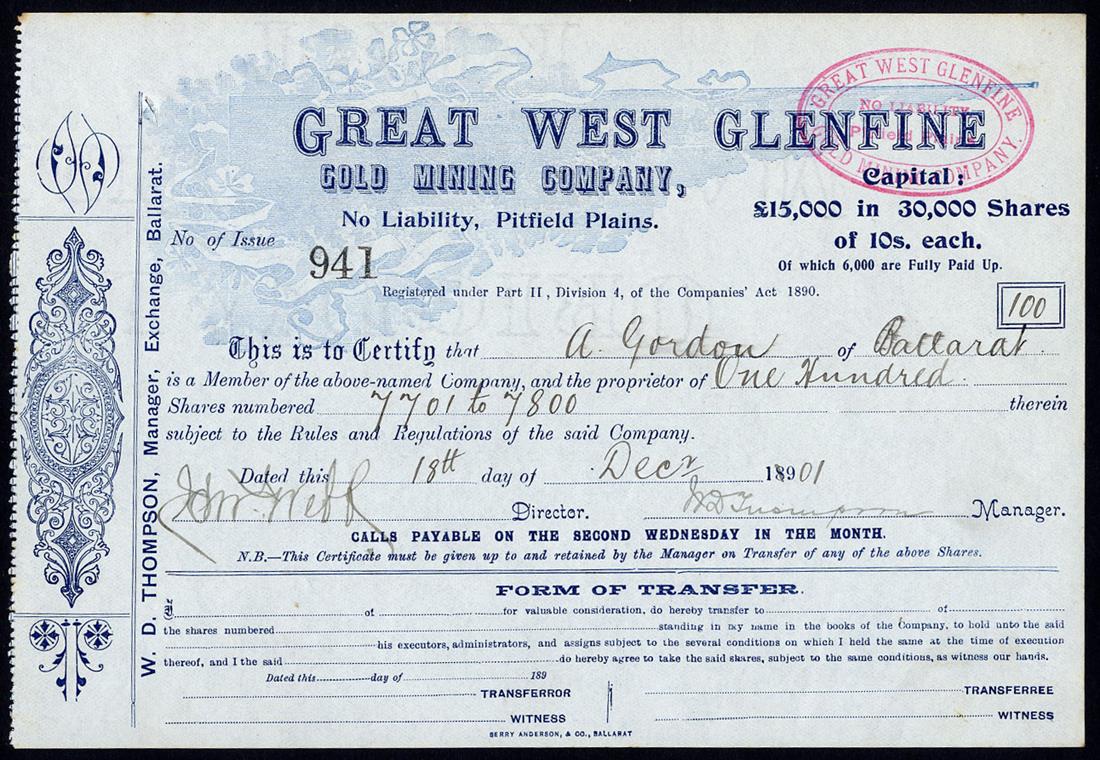 GREAT WEST GLENFINE
GOLD MINING COMPANY,
No Liability, Pitfield Plains.
GREAT WEST GLENFINE
NO LIABILITY
Pitfield Plains
GOLD MINING COMPANY.
Capital:
£15,000 in 30,000 Shares
of 10s. each.
Of which 6,000 are Fully Paid Up.
No of Issue 941
Registered under Part II, Division 4, of the Companies' Act 1890.
100
This is to Certify that A. Gordon of Ballarat
is a Member of the above-named Company, and the proprietor of One Hundred
Shares numbered 7701 to 7800 therein
subject to the Rules and Regulations of the said Company.
Dated this 18th day of Decr 18901
Jno. W. Webb Director. W D Thompson Manager.
CALLS PAYABLE ON THE SECOND WEDNESDAY IN THE MONTH.
N.B.—This Certificate must be given up to and retained by the Manager on Transfer of any of the above Shares.
FORM OF TRANSFER.
I of for valuable consideration, do hereby transfer to of
the shares numbered standing in my name in the books of the Company, to hold unto the said
his executors, administrators, and assigns subject to the several conditions on which I held the same at the time of execution
thereof, and I the said do hereby agree to take the said shares, subject to the same conditions, as witness our hands.
Dated this day of 189
TRANSFERROR TRANSFERREE
WITNESS WITNESS
BERRY ANDERSON, & CO., BALLARAT
W. D. THOMPSON, Manager, Exchange, Ballarat.